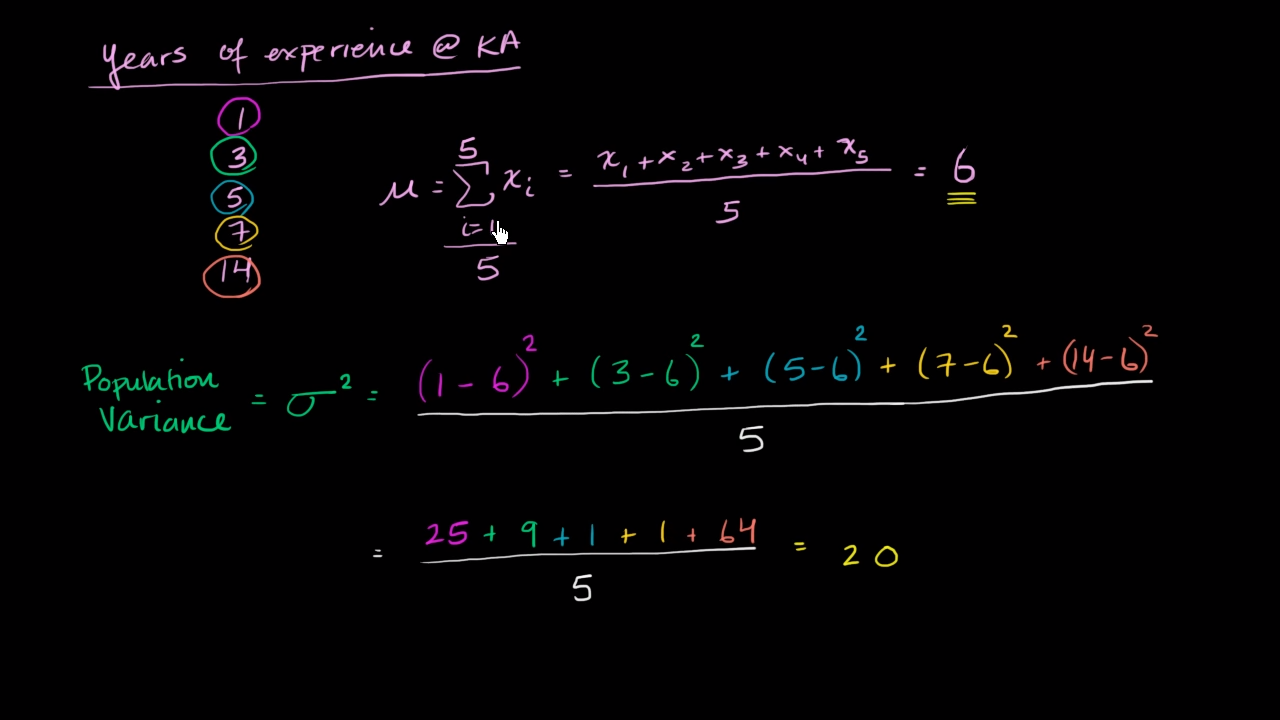 Years of experience @ KA
1
3
5
7
14
5
μ = Σ xᵢ = x₁ + x₂ + x₃ + x₄ + x₅ = 6
i=1
5
5
Population
Variance
= σ² = (1 - 6)² + (3 - 6)² + (5 - 6)² + (7 - 6)² + (14 - 6)²
5
= 25 + 9 + 1 + 1 + 64 = 20
5